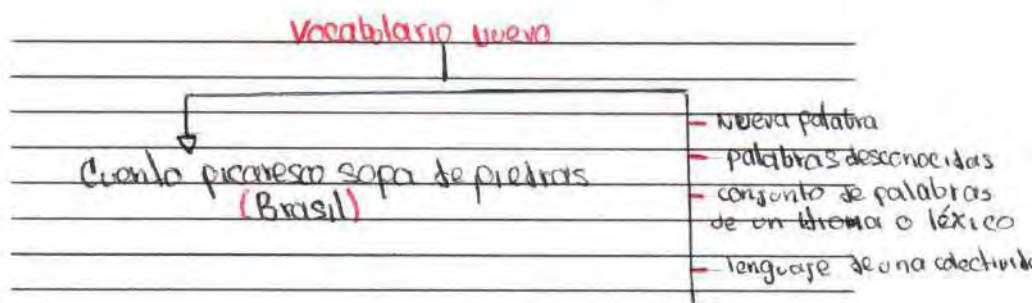 Vocabulario nuevo
Cuento picaresco sopa de piedras
(Brasil)
Nueva palabra
palabras desconocidas
conjunto de palabras
de un idioma o léxico
lenguaje de una colectivid